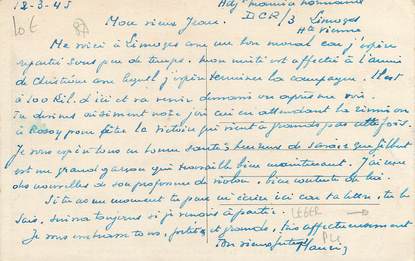 12-3-45
Adj
DCR/3 Limoges
Hte Vienne
Mon vieux Jean.
Me voici à Limoges avec un bon moral car j'espère
repartir sous peu de temps. mon unité est affectée à l'armée
de Châtillon avec lequel j'espère terminer la campagne. Il est
à 100 Kil. d'ici et va venir demain ou après me voir.
Tu devines aisément notre joie aussi en attendant la réunion
à pour fêter la victoire qui vient à grands pas cette fois.
Je vous espère tous en bonne santé. Heureux de savoir que Gilbert
est un grand garçon qui travaille bien maintenant. J'ai eu
des nouvelles de son professeur de violon, bien contente de lui.
Si tu as un moment tu peux m'écrire ici car ta lettre, tu le
sais, suivra toujours si je venais à partir.
Je vous embrasse tous, petits et grands, très affectueusement
Ton vieux
Maurice